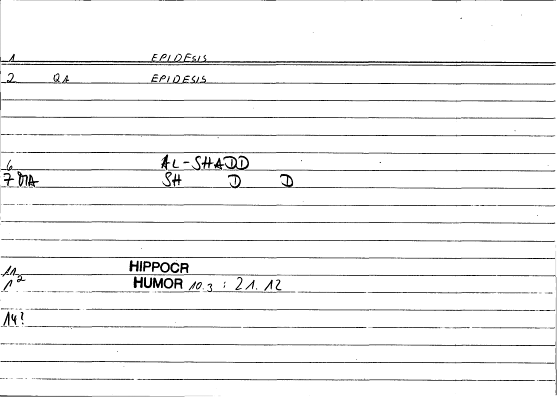 1 EPIDESIS
2 QA EPIDESIS
6 AL-SHADD
7 SH D D
11 HIPPOCR
12 HUMOR 10.3 : 21.12
14?